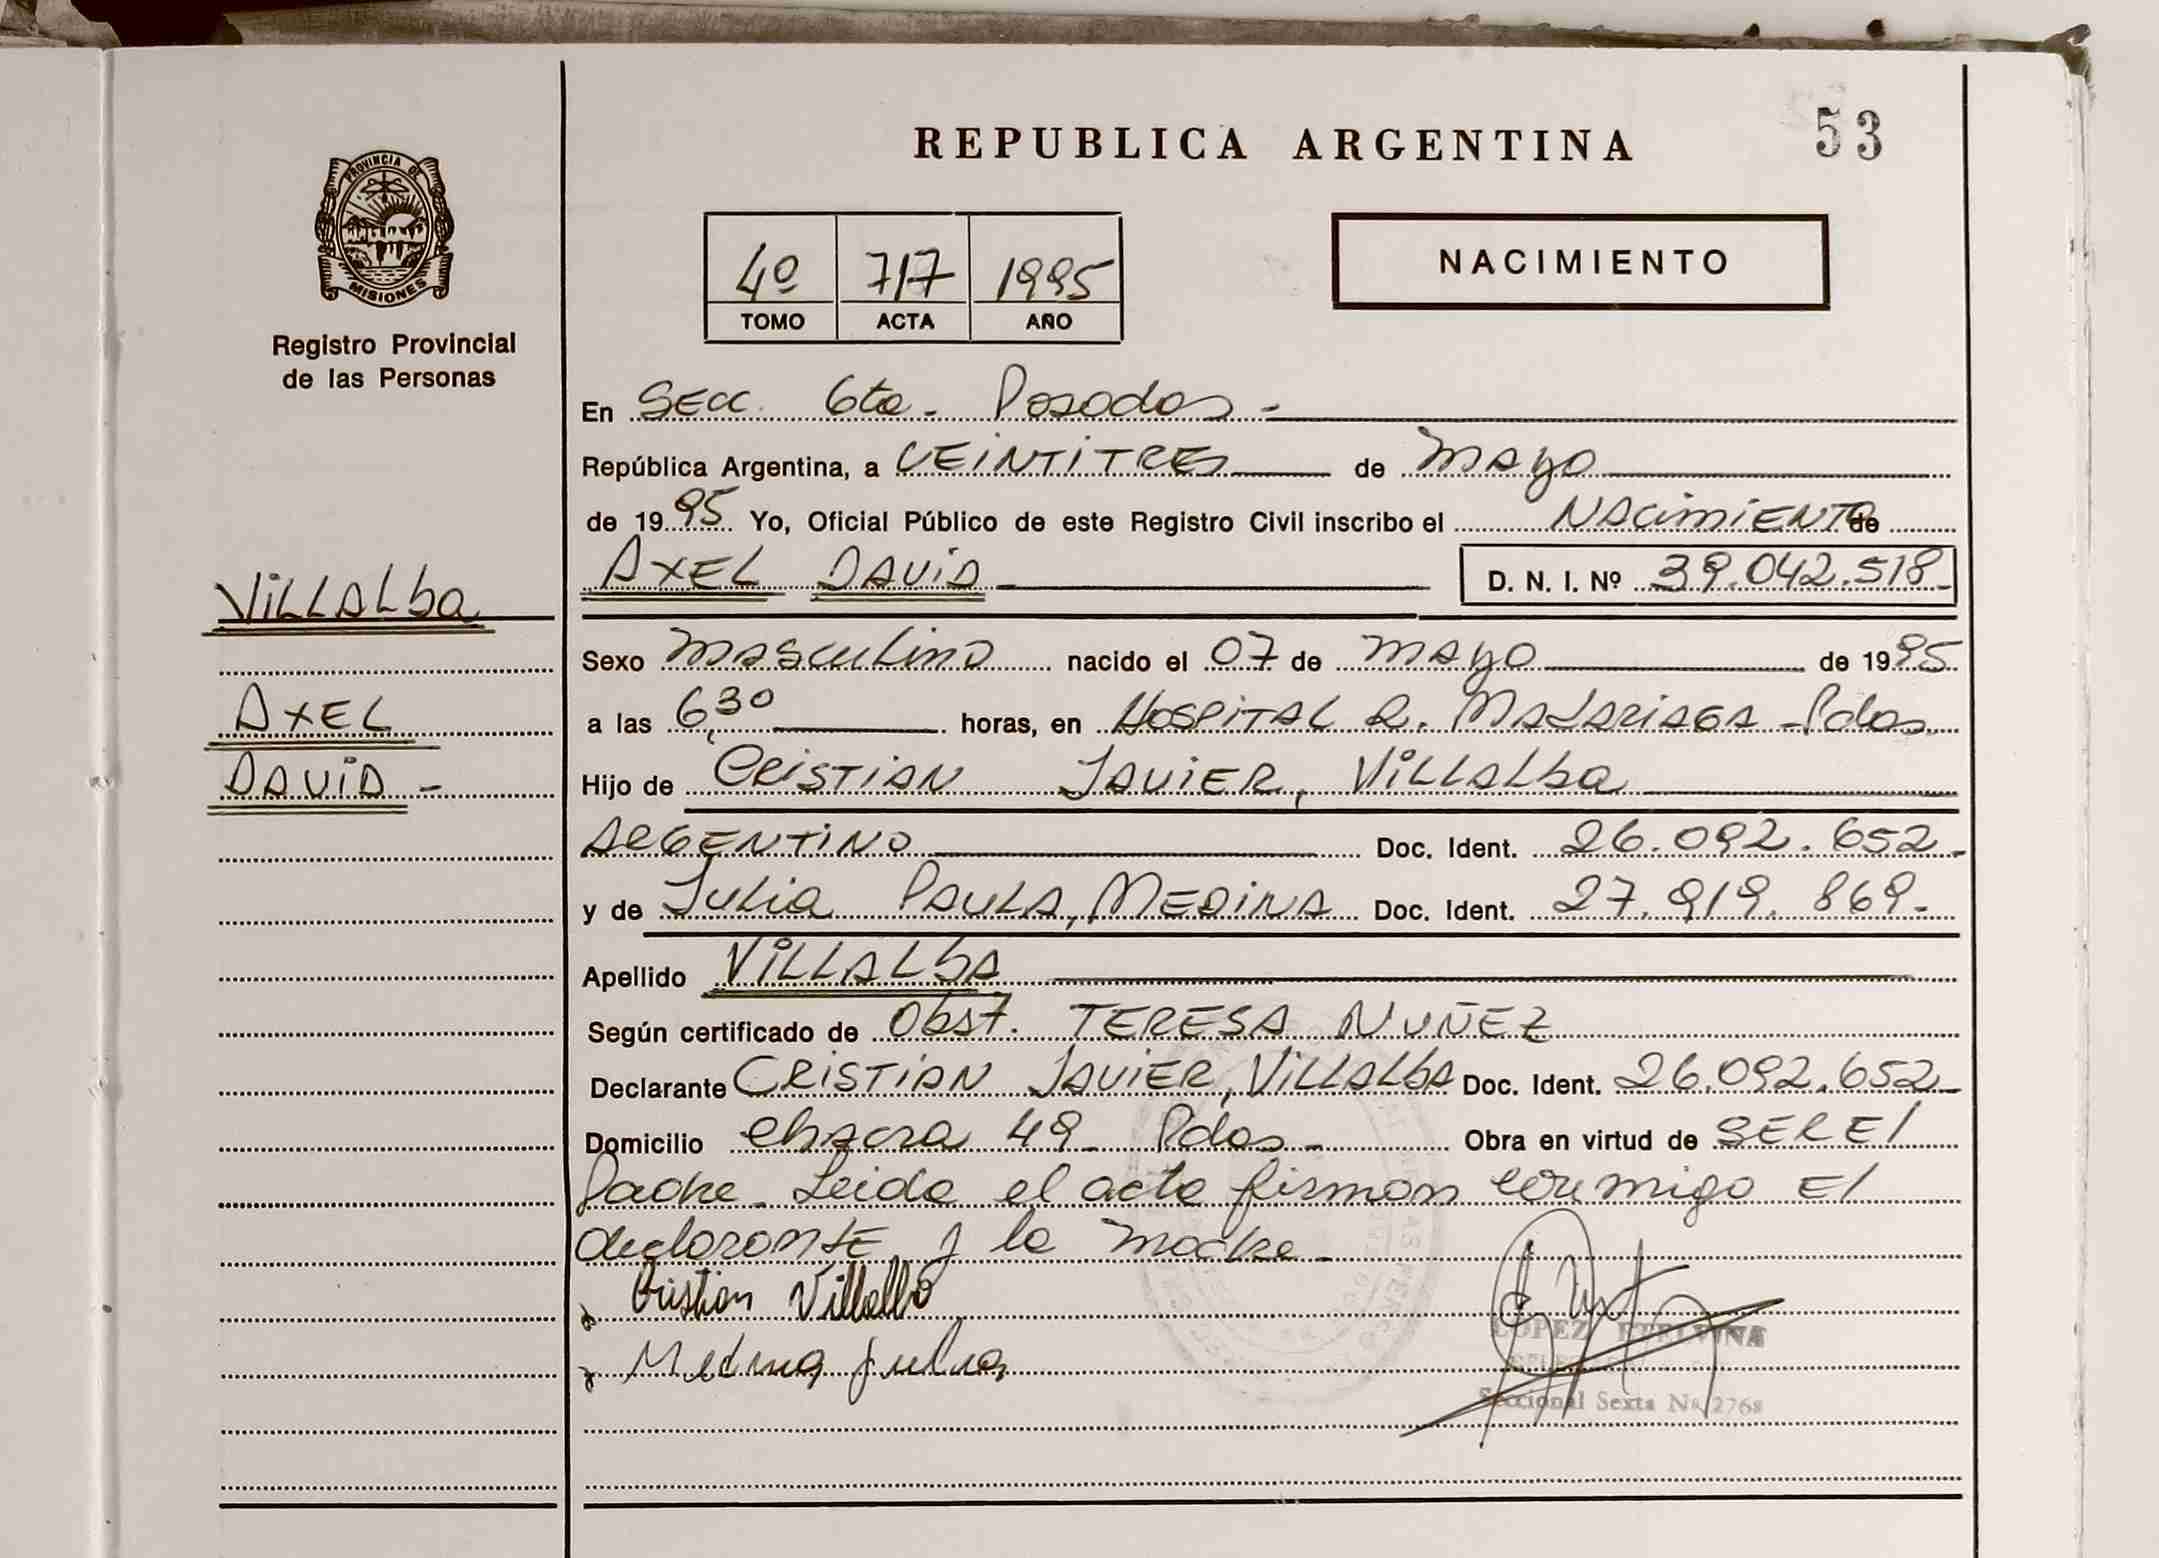 REPUBLICA ARGENTINA
53
PROVINCIA DE
MISIONES
Registro Provincial
de las Personas
4º 717 1995
TOMO ACTA AÑO
NACIMIENTO
En Secc. 6ta. Posadas -
República Argentina, a VEINTITRES de Mayo
de 1995 Yo, Oficial Público de este Registro Civil inscribo el NACIMIENTO de
AXEL DAVID D. N. I. Nº 39.042.518-
Villalba
Sexo Masculino nacido el 07 de Mayo de 1995
AXEL
a las 6,30 horas, en HOSPITAL R. MADARIAGA - Pdas.
DAVID -
Hijo de CRISTIAN JAVIER, Villalba
ARGENTINO Doc. Ident. 26.092.652.
y de Julia PAULA, MEDINA Doc. Ident. 27.919.869.
Apellido VILLALBA
Según certificado de Obst. TERESA NUÑEZ
Declarante CRISTIAN JAVIER, Villalba Doc. Ident. 26.092.652-
Domicilio Chacra 49 - Pdas. - Obra en virtud de SER El
Padre - Leida el acta firman conmigo El
declarante y la madre -
Cristian Villalba
Medina Julia
LOPEZ ETELVINA
Seccional Sexta Nº 2768